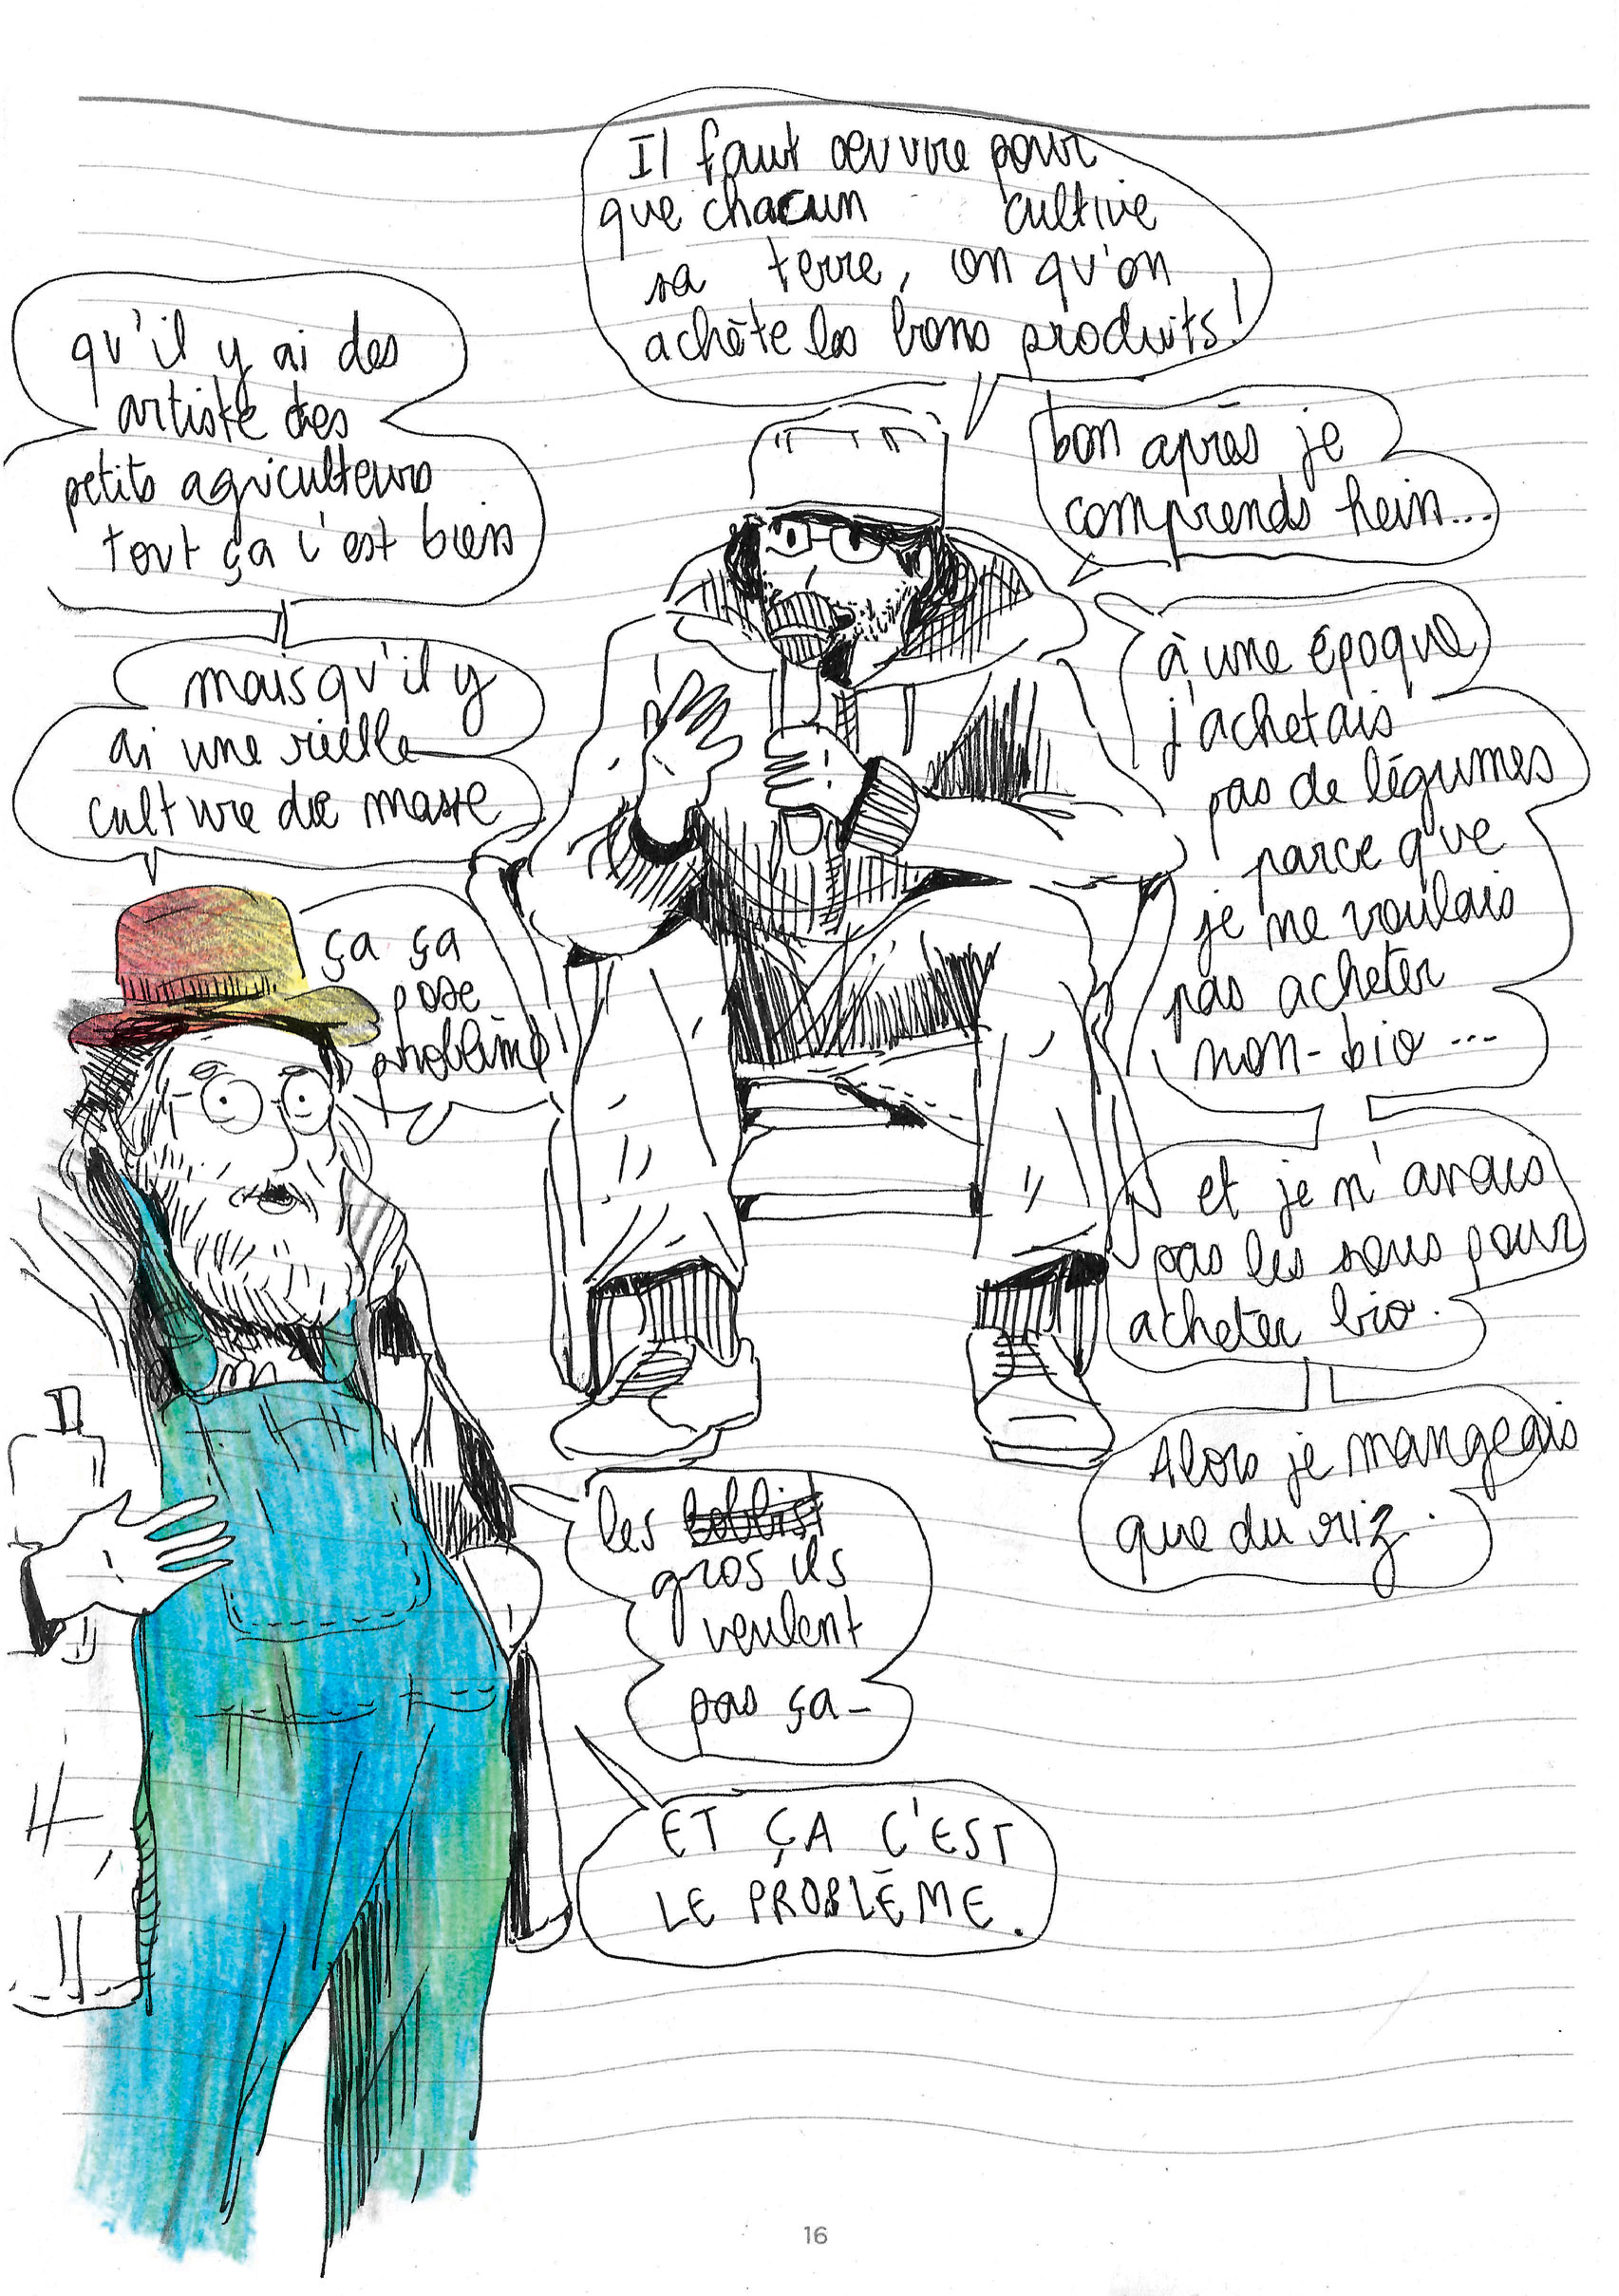 Il faut œuvrer pour
que chacun cultive
sa terre, on qu'on
achète les bons produits!
bon après je
comprends hein...
à une époque
j'achetais
pas de légumes
parce que
je ne voulais
pas acheter
non-bio...
et je n'avais
pas les sous pour
acheter bio.
Alors je mangeais
que du riz.
qu'il y ai des
artiste des
petits agriculteurs
tout ça c'est bien
mais qu'il y
ai une réelle
culture de masse
ça ça
pose
problème!
les
gros ils
veulent
pas ça-
ET ÇA C'EST
LE PROBLÈME.
16